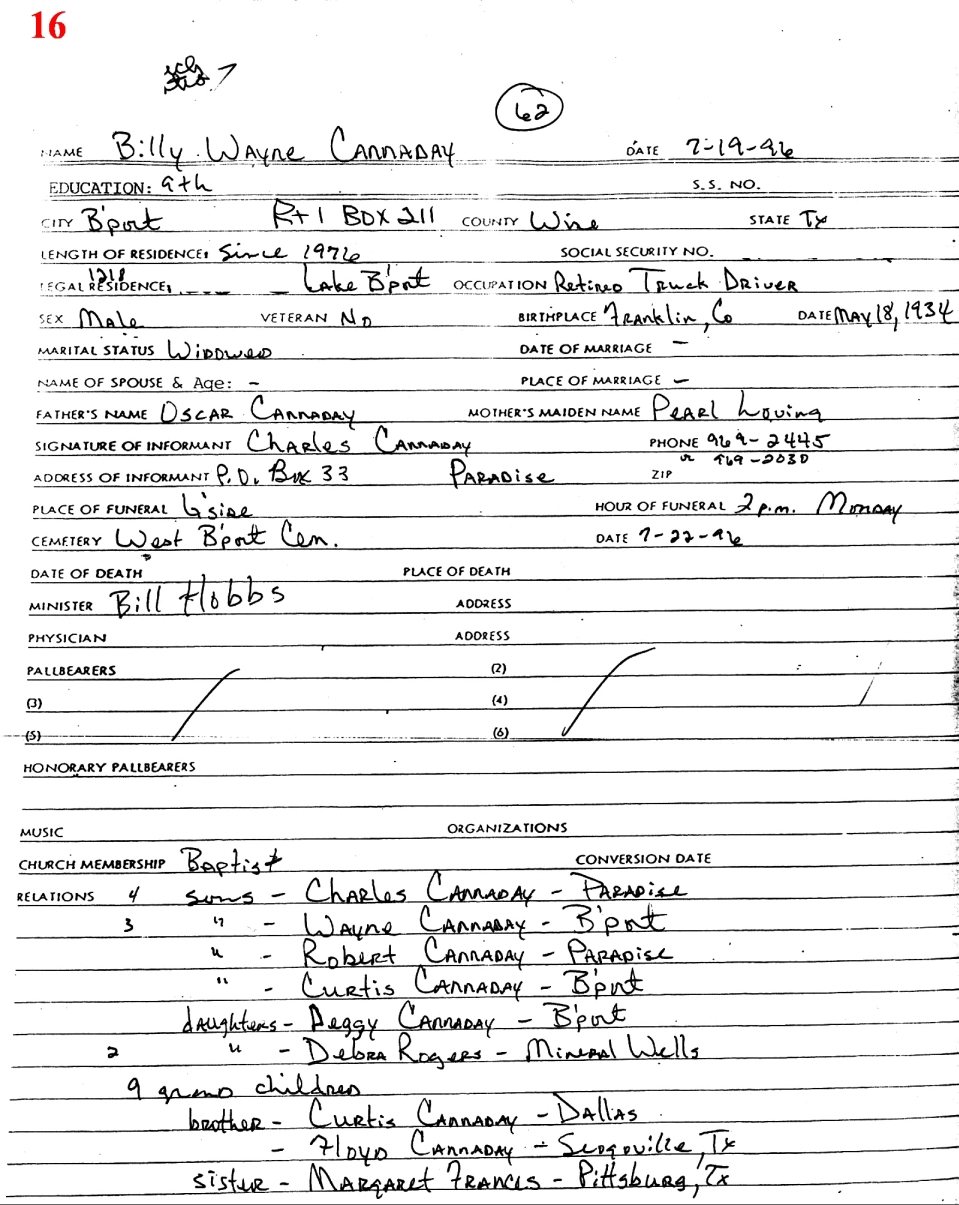 16
7
62
NAME Billy Wayne CANNADAY DATE 7-19-96
EDUCATION: 9th S.S. NO.
CITY B'port Rt 1 BOX 211 COUNTY Wise STATE Tx
LENGTH OF RESIDENCE: Since 1976 SOCIAL SECURITY NO.
1218
LEGAL RESIDENCE: Lake B'port OCCUPATION Retired Truck Driver
SEX Male VETERAN No BIRTHPLACE Franklin, Co DATE May 18, 1934
MARITAL STATUS Widowed DATE OF MARRIAGE -
NAME OF SPOUSE & Age: - PLACE OF MARRIAGE -
FATHER'S NAME Oscar Cannaday MOTHER'S MAIDEN NAME Pearl Loving
SIGNATURE OF INFORMANT Charles Cannaday PHONE 969-2445
or 969-2030
ADDRESS OF INFORMANT P.O. Box 33 Paradise ZIP
PLACE OF FUNERAL G'side HOUR OF FUNERAL 2 p.m. Monday
CEMETERY West B'port Cem. DATE 7-22-96
DATE OF DEATH PLACE OF DEATH
MINISTER Bill Hobbs ADDRESS
PHYSICIAN ADDRESS
PALLBEARERS (2)
(3) (4)
(5) (6)
HONORARY PALLBEARERS
MUSIC ORGANIZATIONS
CHURCH MEMBERSHIP Baptist CONVERSION DATE
RELATIONS 4 sons - Charles Cannaday - Paradise
3 " - Wayne Cannaday - B'port
" - Robert Cannaday - Paradise
" - Curtis Cannaday - B'port
daughters - Peggy Cannaday - B'port
2 " - Debra Rogers - Mineral Wells
9 grand children
brother - Curtis Cannaday - Dallas
- Floyd Cannaday - Seagoville, Tx
sister - Margaret Francis - Pittsburg, Tx